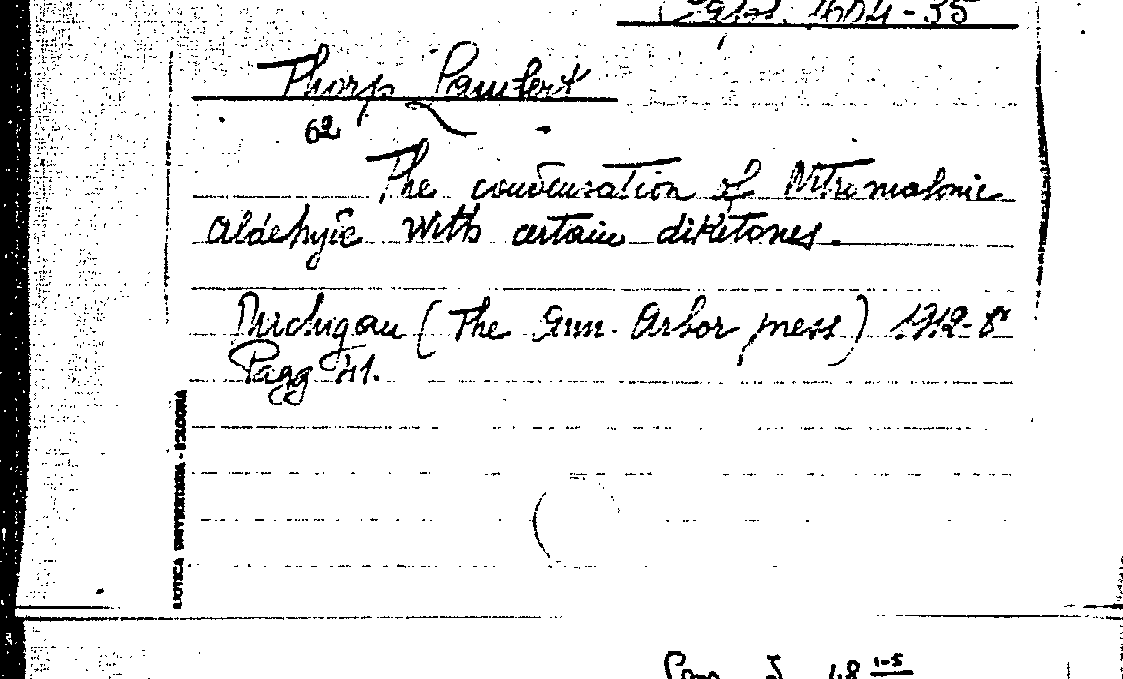 1604-35
Thorp Lambert
62
The condensation of Nitromalonic
aldehyic with certain diketones.
Michigan (The Ann. Arbor press) 1912-8°
Pagg 41.
BIBLIOTECA UNIVERSITARIA - BOLOGNA
48 1-5